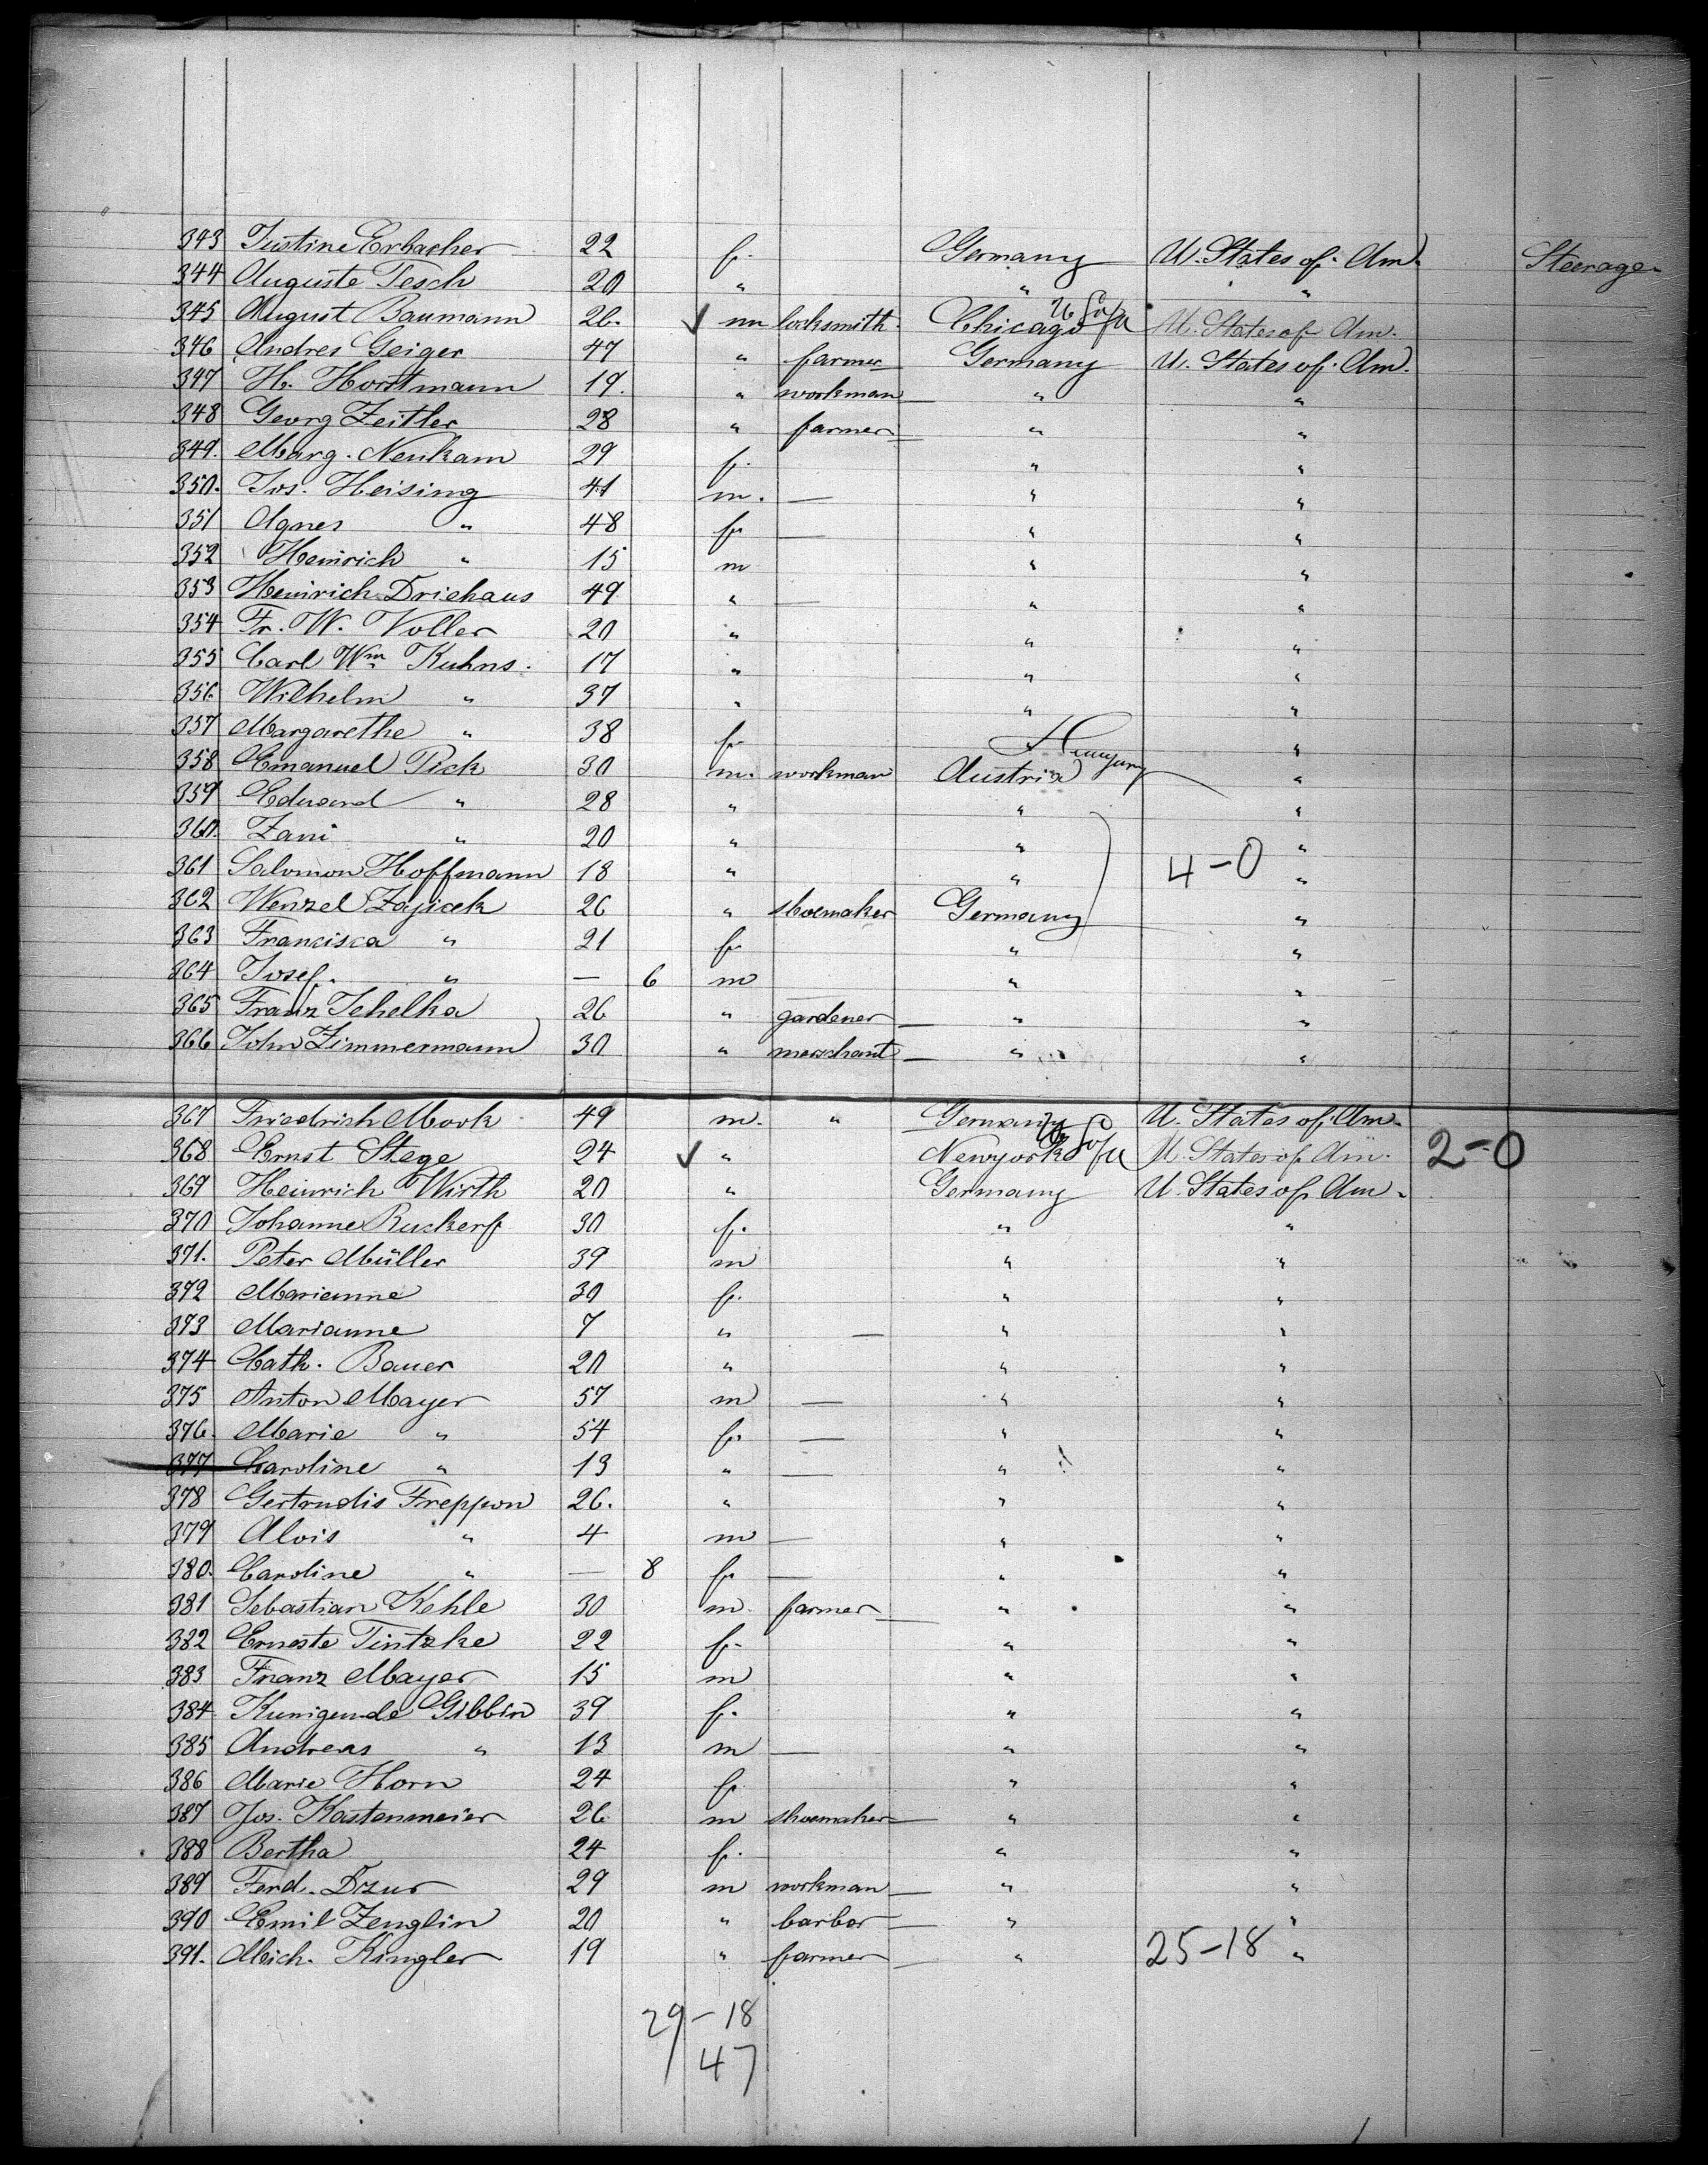 343 Justine Erbacher 22 f. Germany U. States of Am. Steerage
344 Auguste Tesch 20 " " "
345 August Baumann 26. ✓ m locksmith. Chicago U. States of Am.
346 Andres Geiger 47 " farmer Germany U. States of Am.
347 H. Horstmann 19. " workman " "
348 Georg Zeitler 28 " farmer " "
349. Marg. Neukam 29 f. " "
350. Jos. Heising 41 m. — " "
351 Agnes " 48 f — " "
352 Heinrich " 15 m " "
353 Heinrich Driehaus 49 " — " "
354 Fr. W. Voller 20 " " "
355 Carl Wm Kuhns. 17 " " "
356 Wilhelm " 37 " " "
357 Margarethe " 38 f " "
Hungary
358 Emanuel Pick 30 m. workman Austria "
359 Eduard " 28 " " "
360. Zani " 20 " " "
361 Salomon Hoffmann 18 " " 4-0 "
362 Wenzel Zajicek 26 " shoemaker Germany "
363 Franzisca " 21 f " "
364 Josef. " — 6 m " "
365 Franz Tehelka 26 " gardener — " "
366 John Zimmermann 30 " merchant — " "
367 Friedrich Mook 49 m. " Germany U. States of Am.
368 Ernst Stege 24 ✓ " Newyork U. States of Am. 2-0
369 Heinrich Wirth 20 " Germany U. States of Am.
370 Johanne Ruckerf 30 f. " "
371. Peter Müller 39 m " "
372 Marianne 30 f. " "
373 Marianne 7 " — " "
374 Cath. Bauer 20 " " "
375 Anton Mayer 57 m — " "
376. Marie " 54 f. — " "
377 Caroline " 13 " — " "
378 Gertrudis Freppon 26. " " "
379 Alois " 4 m — " "
380. Caroline " — 8 f — " "
381 Sebastian Kehle 30 m. farmer — " "
382 Erneste Tintzke 22 f. " "
383 Franz Mayer 15 m " "
384. Kunigunde Gibbin 39 f. " "
385 Andreas " 13 m — " "
386 Marie Horn 24 f. " "
387 Jos. Kastenmeier 26 m shoemaker — " "
388 Bertha 24 f. " "
389 Ferd. Dzur 29 m workman — " "
390 Emil Zenglin 20 " barber — " "
391. Mich. Kingler 19 " farmer — " 25-18 "
29-18
47